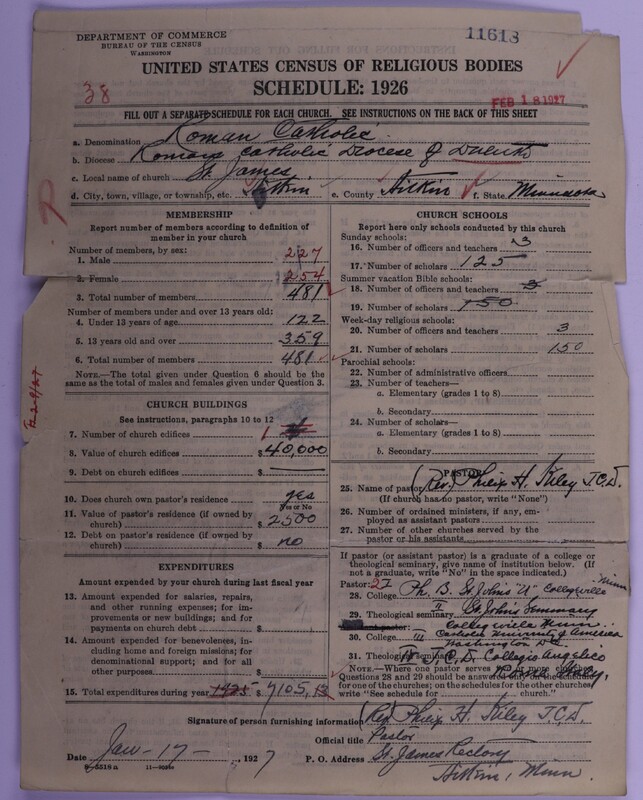 DEPARTMENT OF COMMERCE
BUREAU OF THE CENSUS
WASHINGTON
11613
UNITED STATES CENSUS OF RELIGIOUS BODIES
SCHEDULE: 1926
38
FEB 18 1927
FILL OUT A SEPARATE SCHEDULE FOR EACH CHURCH. SEE INSTRUCTIONS ON THE BACK OF THIS SHEET
a. Denomination Roman Catholic
b. Diocese Roman Catholic Diocese of Duluth
c. Local name of church St. James
d. City, town, village, or township, etc. Aitkin e. County Aitkin f. State Minnesota
MEMBERSHIP
Report number of members according to definition of
member in your church
Number of members, by sex:
1. Male 227
2. Female 254
3. Total number of members 481
Number of members under and over 13 years old:
4. Under 13 years of age 122
5. 13 years old and over 359
6. Total number of members 481
NOTE.—The total given under Question 6 should be the
same as the total of males and females given under Question 3.
CHURCH BUILDINGS
See instructions, paragraphs 10 to 12
7. Number of church edifices 1
8. Value of church edifices $40,000
9. Debt on church edifices $
10. Does church own pastor's residence yes
Yes or No
11. Value of pastor's residence (if owned by
church) $2500
12. Debt on pastor's residence (if owned by
church) $ no
EXPENDITURES
Amount expended by your church during last fiscal year
13. Amount expended for salaries, repairs,
and other running expenses; for im-
provements or new buildings; and for
payments on church debt $
14. Amount expended for benevolences, in-
cluding home and foreign missions; for
denominational support; and for all
other purposes $
15. Total expenditures during year 1925 $ 7105.13
CHURCH SCHOOLS
Report here only schools conducted by this church
Sunday schools:
16. Number of officers and teachers 3
17. Number of scholars 125
Summer vacation Bible schools:
18. Number of officers and teachers 3
19. Number of scholars 150
Week-day religious schools:
20. Number of officers and teachers 3
21. Number of scholars 150
Parochial schools:
22. Number of administrative officers
23. Number of teachers—
a. Elementary (grades 1 to 8)
b. Secondary
24. Number of scholars—
a. Elementary (grades 1 to 8)
b. Secondary
PASTOR
25. Name of pastor (Rev.) Philip H. Kiley J.C.D.
(If church has no pastor, write "None")
26. Number of ordained ministers, if any, em-
ployed as assistant pastors
27. Number of other churches served by the
pastor or his assistants
If pastor (or assistant pastor) is a graduate of a college or
theological seminary, give name of institution below. (If
not a graduate, write "No" in the space indicated.)
Pastor:
28. College Ph. B. St. Johns "U" Collegeville Minn
29. Theological seminary II St. Johns Seminary
Collegeville Minn.
30. College III Catholic University of America
Washington D.C.
31. Theological seminary IV J.C.D. Collegio Angelico
NOTE.—Where one pastor serves two or more churches,
Questions 28 and 29 should be answered only on the schedule
for one of the churches; on the schedules for the other churches
write "See schedule for church."
Signature of person furnishing information (Rev.) Philip H. Kiley J.C.D.
Official title Pastor
Date Jan-17-, 1927 P. O. Address St. James Rectory
Aitkin, Minn.